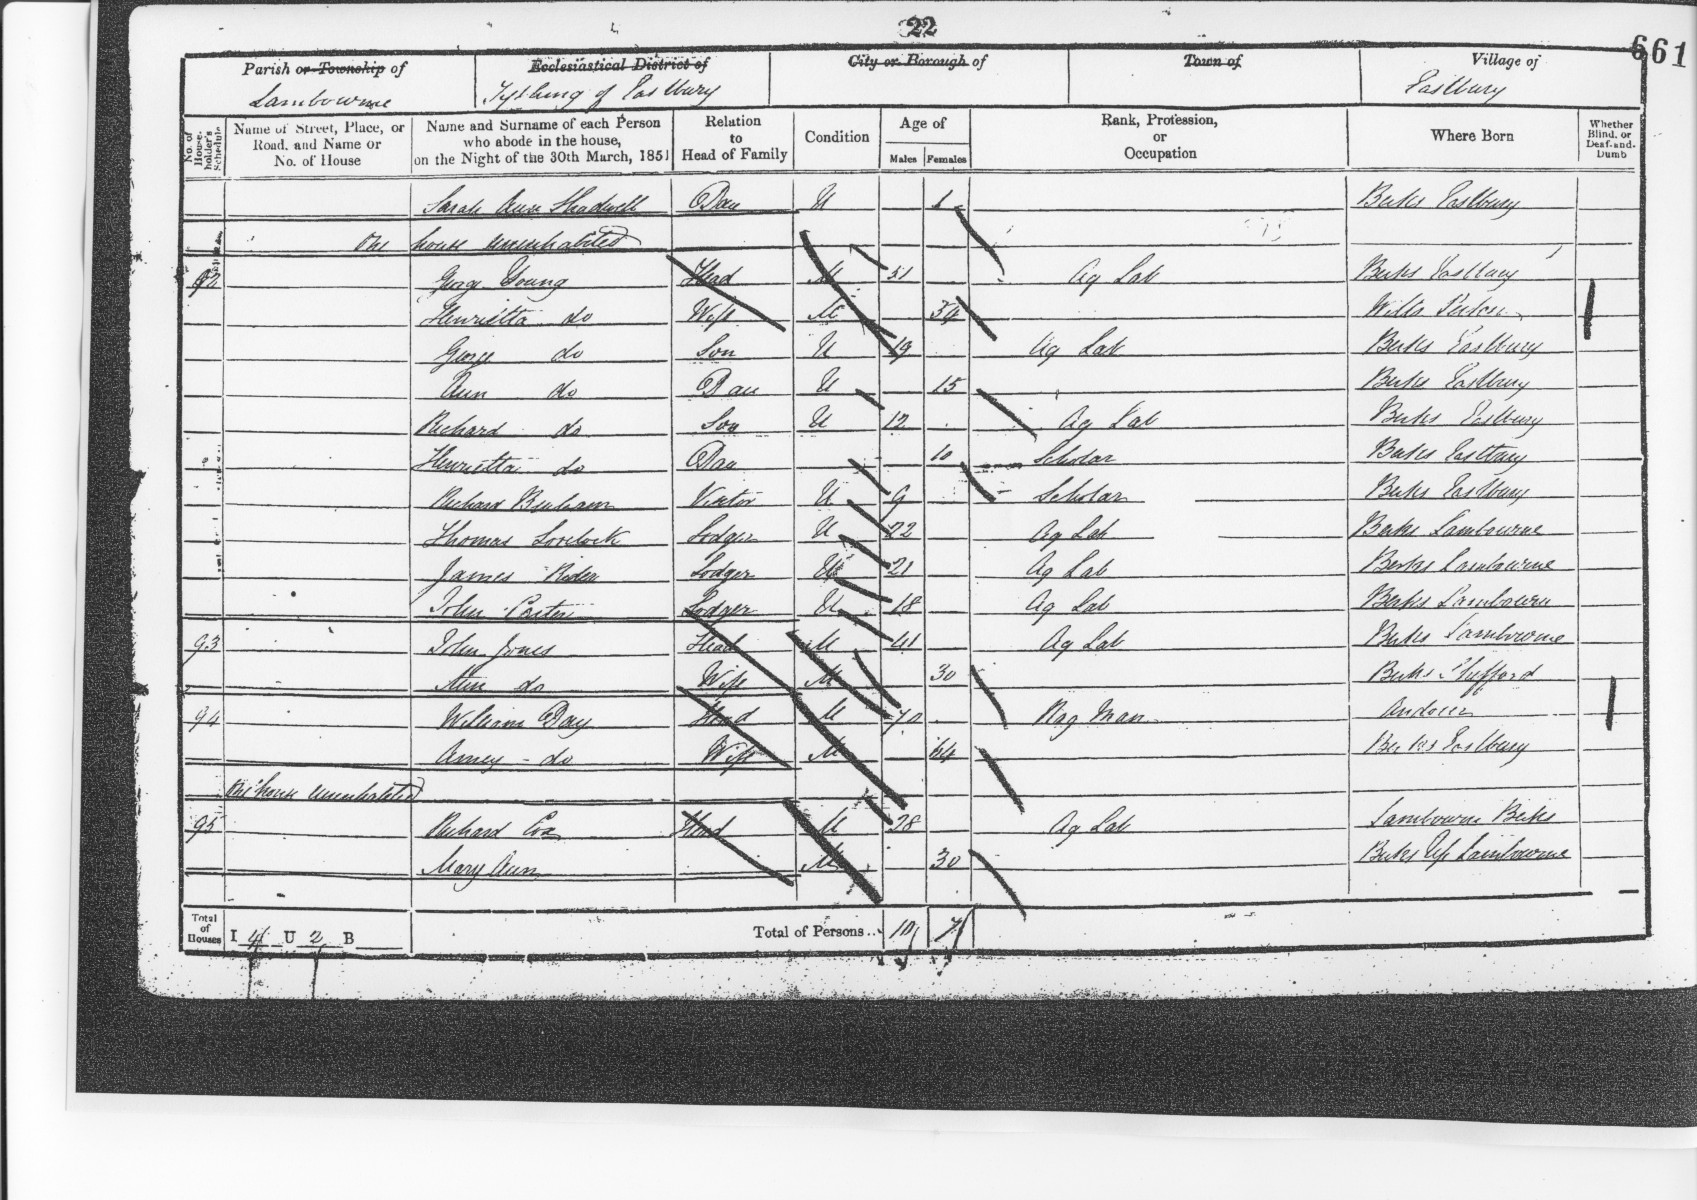 22
661
Parish or Township of
Ecclesiastical District of
City or Borough of
Town of
Village of
Lambourne
Tything of Eastbury
Eastbury
No. of House-holder's Schedule
Name of Street, Place, or Road, and Name or No. of House
Name and Surname of each Person who abode in the house, on the Night of the 30th March, 1851
Relation to Head of Family
Condition
Age of
Males
Females
Rank, Profession, or Occupation
Where Born
Whether Blind, or Deaf-and-Dumb
Sarah Ann Shadwell Dau U 1 Berks Eastbury
One house uninhabited
92 George Young Head M 51 Ag Lab Berks Eastbury
Henrietta do Wife M 54 Wilts
George do Son U 19 Ag Lab Berks Eastbury
Ann do Dau U 15 Berks Eastbury
Richard do Son U 12 Ag Lab Berks Eastbury
Henrietta do Dau 10 Scholar Berks Eastbury
Richard Visitor U 9 Scholar Berks Eastbury
Thomas Lovelock Lodger U 22 Ag Lab Berks Lambourne
James Lodger U 21 Ag Lab Berks Lambourne
John Lodger U 18 Ag Lab Berks Lambourn
93 John Jones Head M 41 Ag Lab Berks Lambourne
Ann do Wife M 30 Berks Shefford
94 William Day Head M 70 Rag Man Andover
Amey do Wife M 64 Berks Eastbury
One house uninhabited
95 Richard Cox Head M 28 Ag Lab Lambourne Berks
Mary Ann M 30 Berks Up Lambourne
Total of Houses I 4 U 2 B
Total of Persons... 10 7